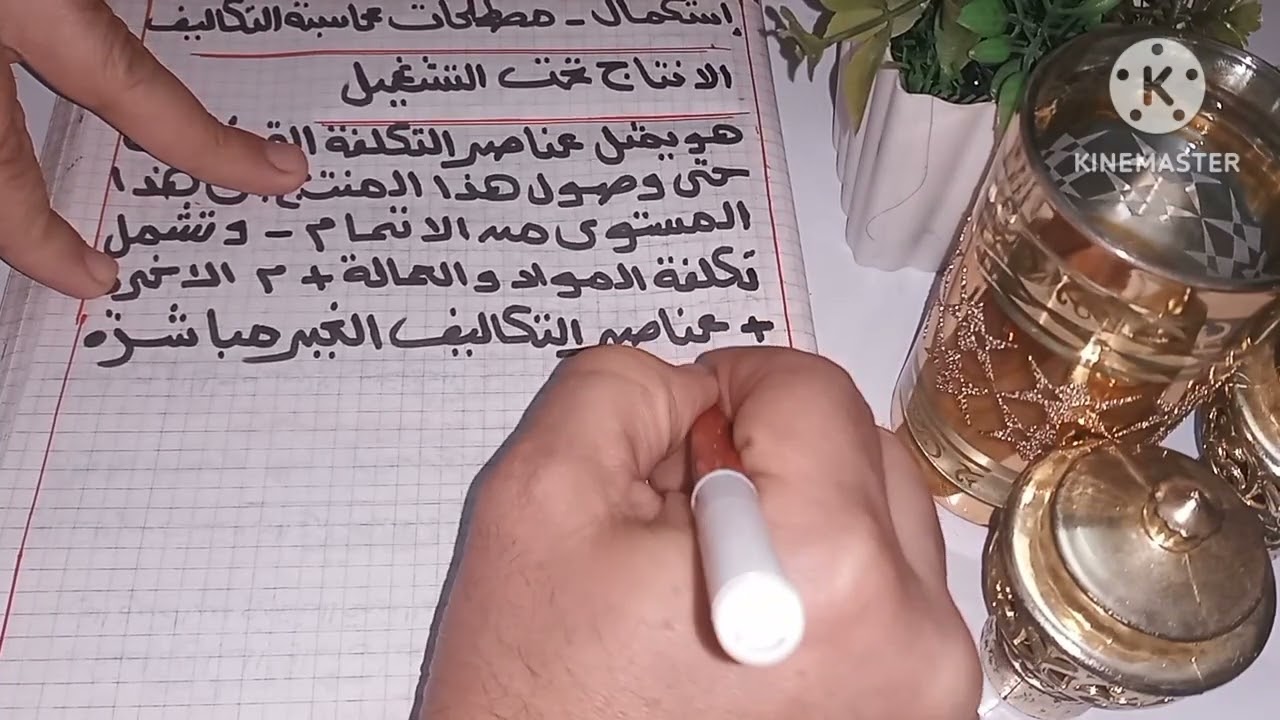 إستكمال - مصطلحات محاسبة التكاليف
الانتاج تحت التشغيل
هو يمثل عناصر التكلفة
حتى وصول هذا المنتج هذا
المستوى من الاتمام - وتشمل
تكلفة المواد والعمالة + م الاخرى
+ عناصر التكاليف الغير مباشرة
K
KINEMASTER